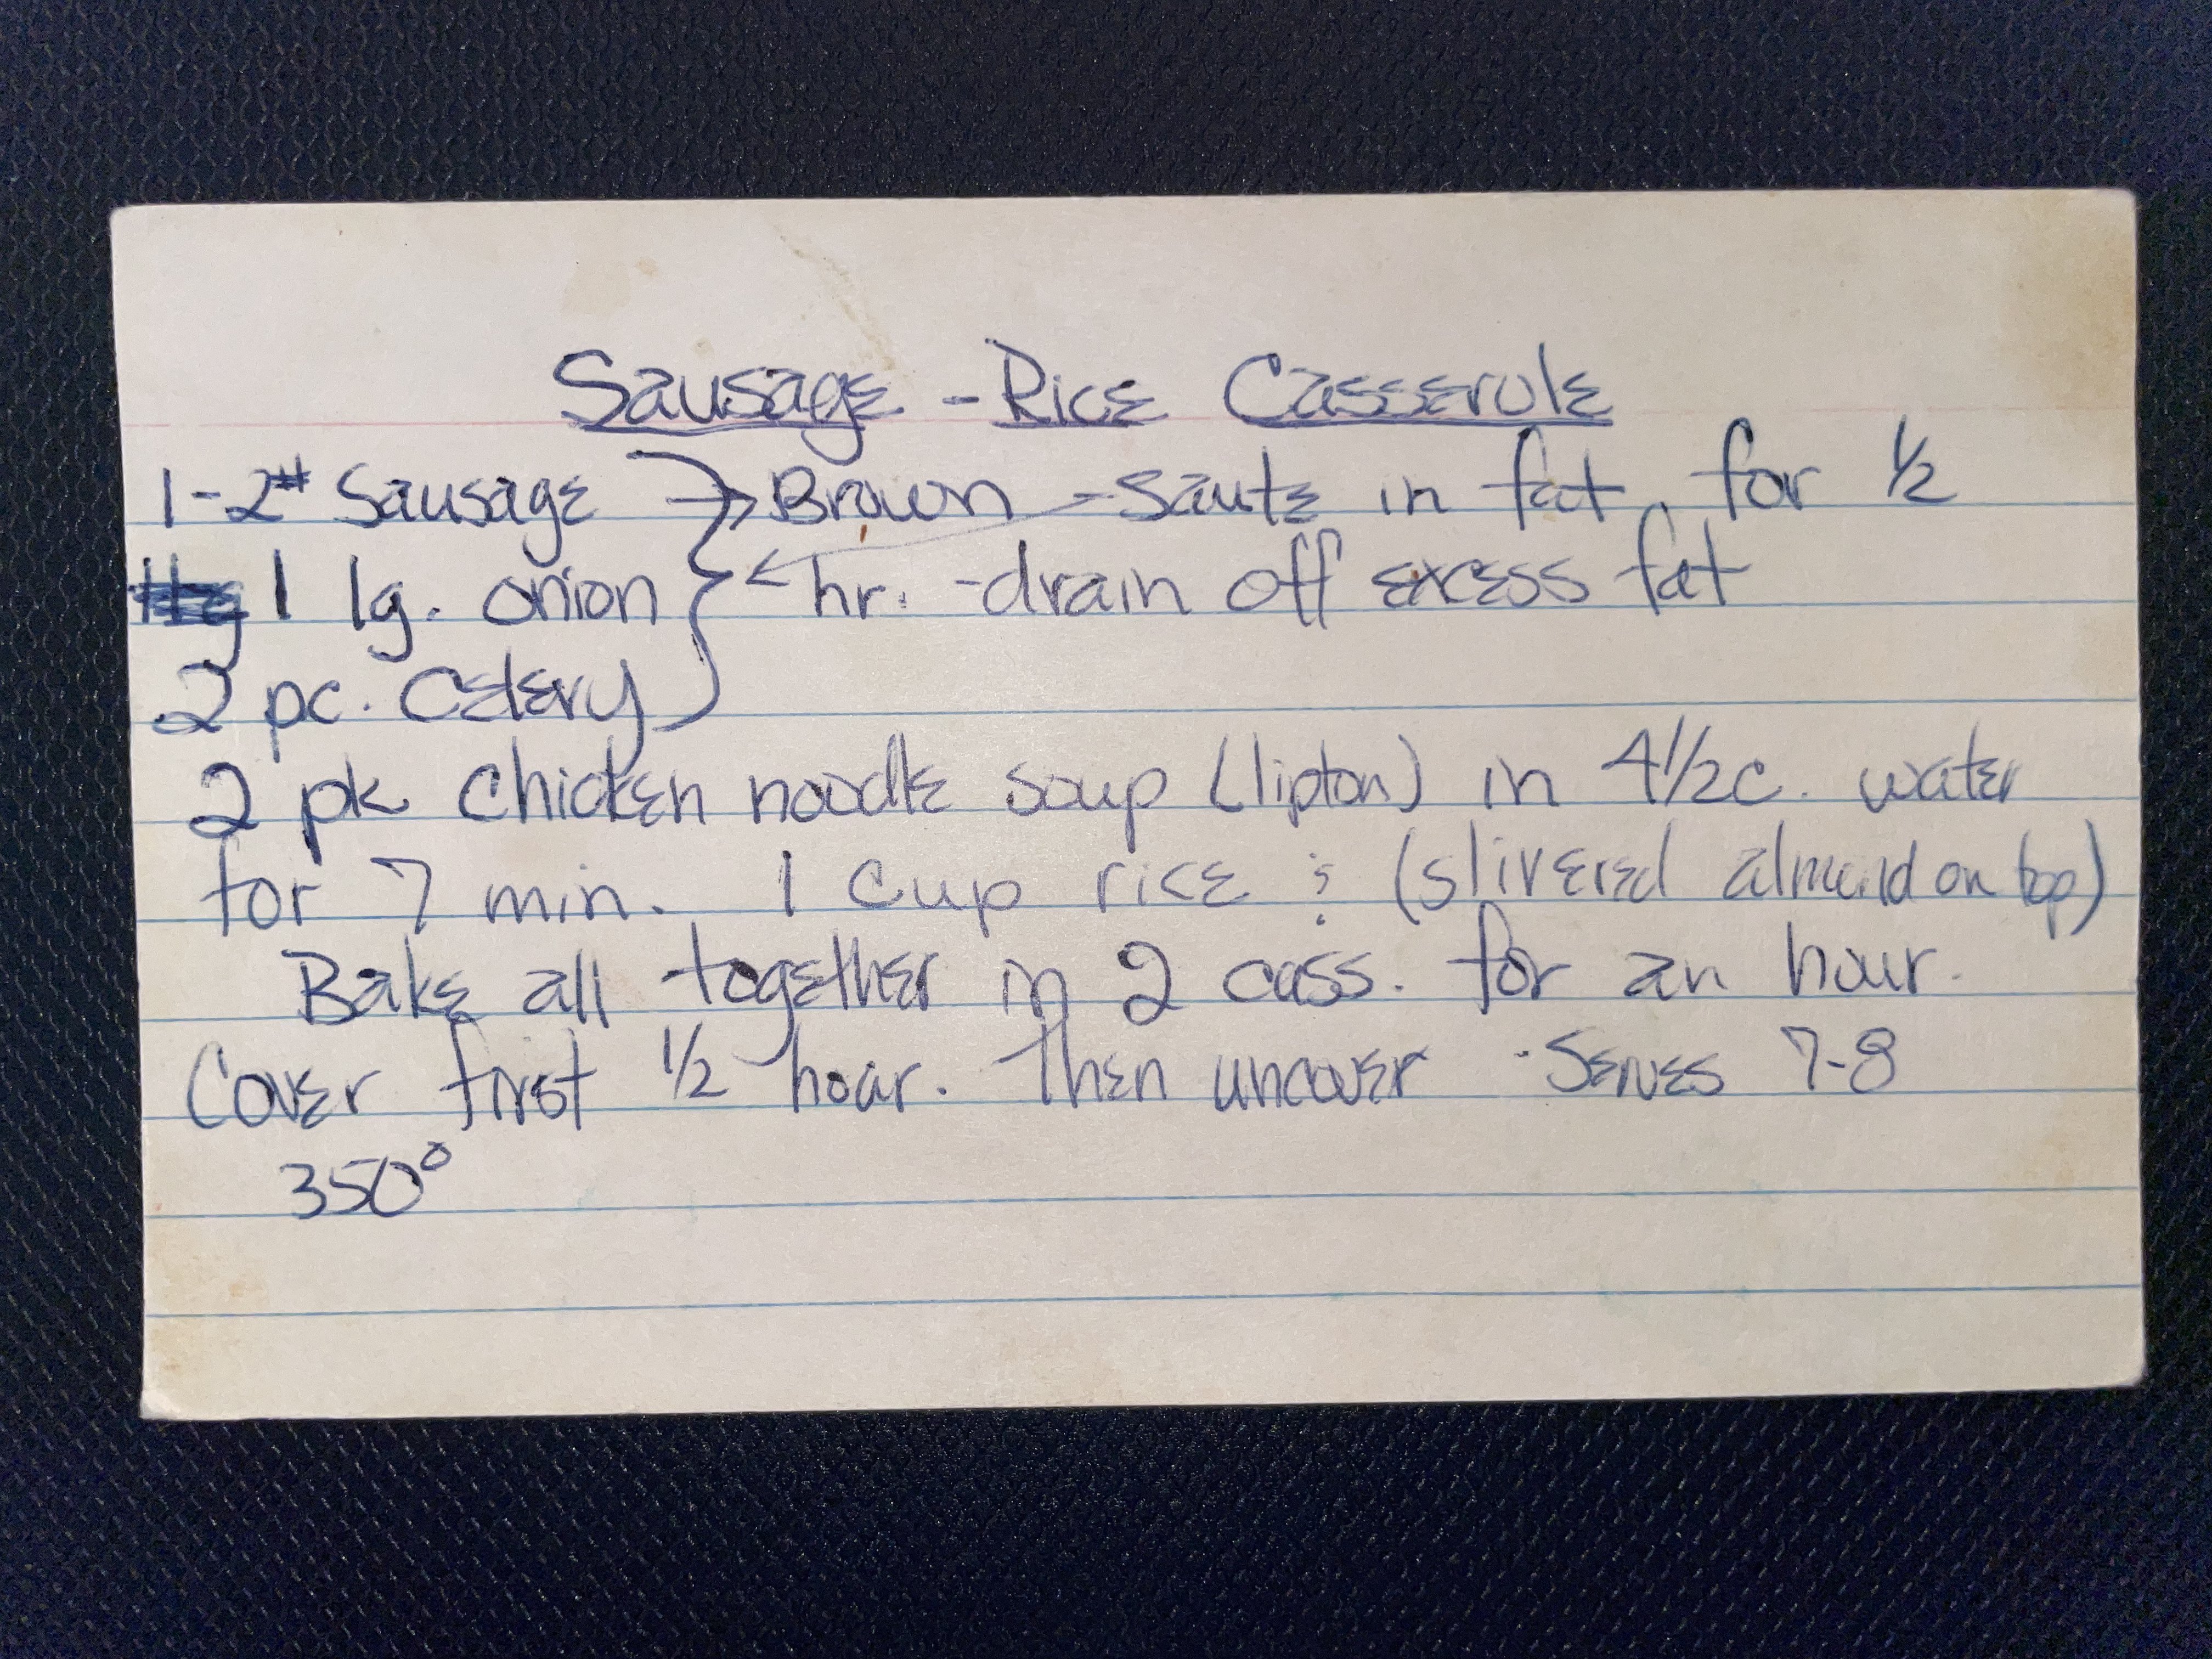 Sausage - Rice Casserole
1-2# Sausage → Brown - saute in fat for 1/2
1 lg. onion ← hr. - drain off excess fat
2 pc. Celery
2 pk chicken noodle soup (lipton) in 4 1/2 c. water
for 7 min. 1 cup rice & (slivered almond on top)
Bake all together in 2 cass. for an hour.
Cover first 1/2 hour. Then uncover · Serves 7-8
350°